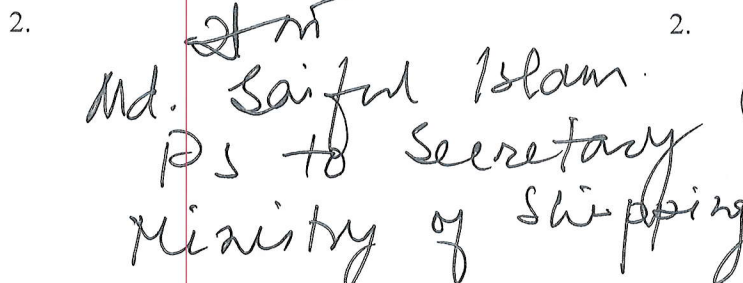 2. 2.
Md. Saiful Islam.
PS to Secretary
Ministry of Shipping